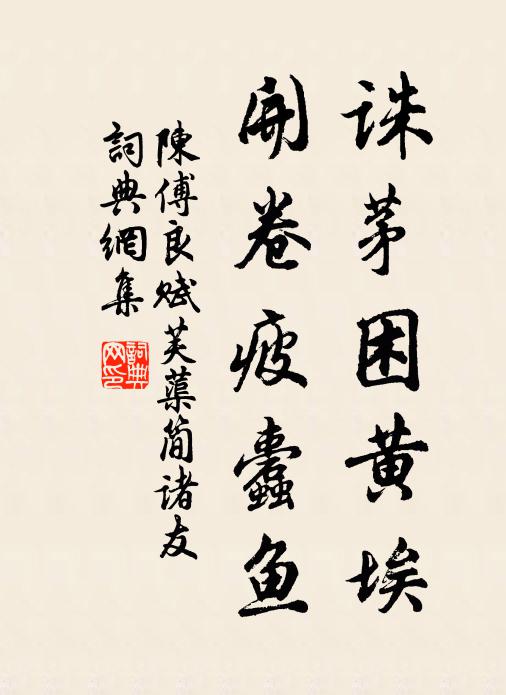 誅茅困黄埃
開卷疲蠹鱼
陳傅良賦芙蕖简诸友
詞典網集
詞典网印